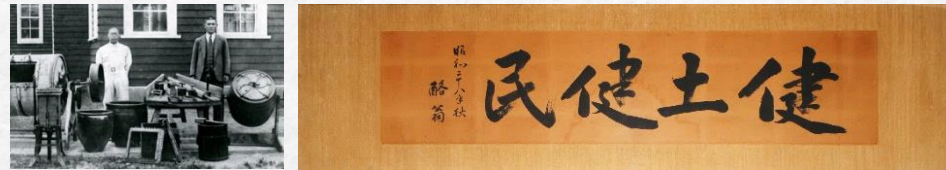 健土健民
昭和二十八年秋
酪翁